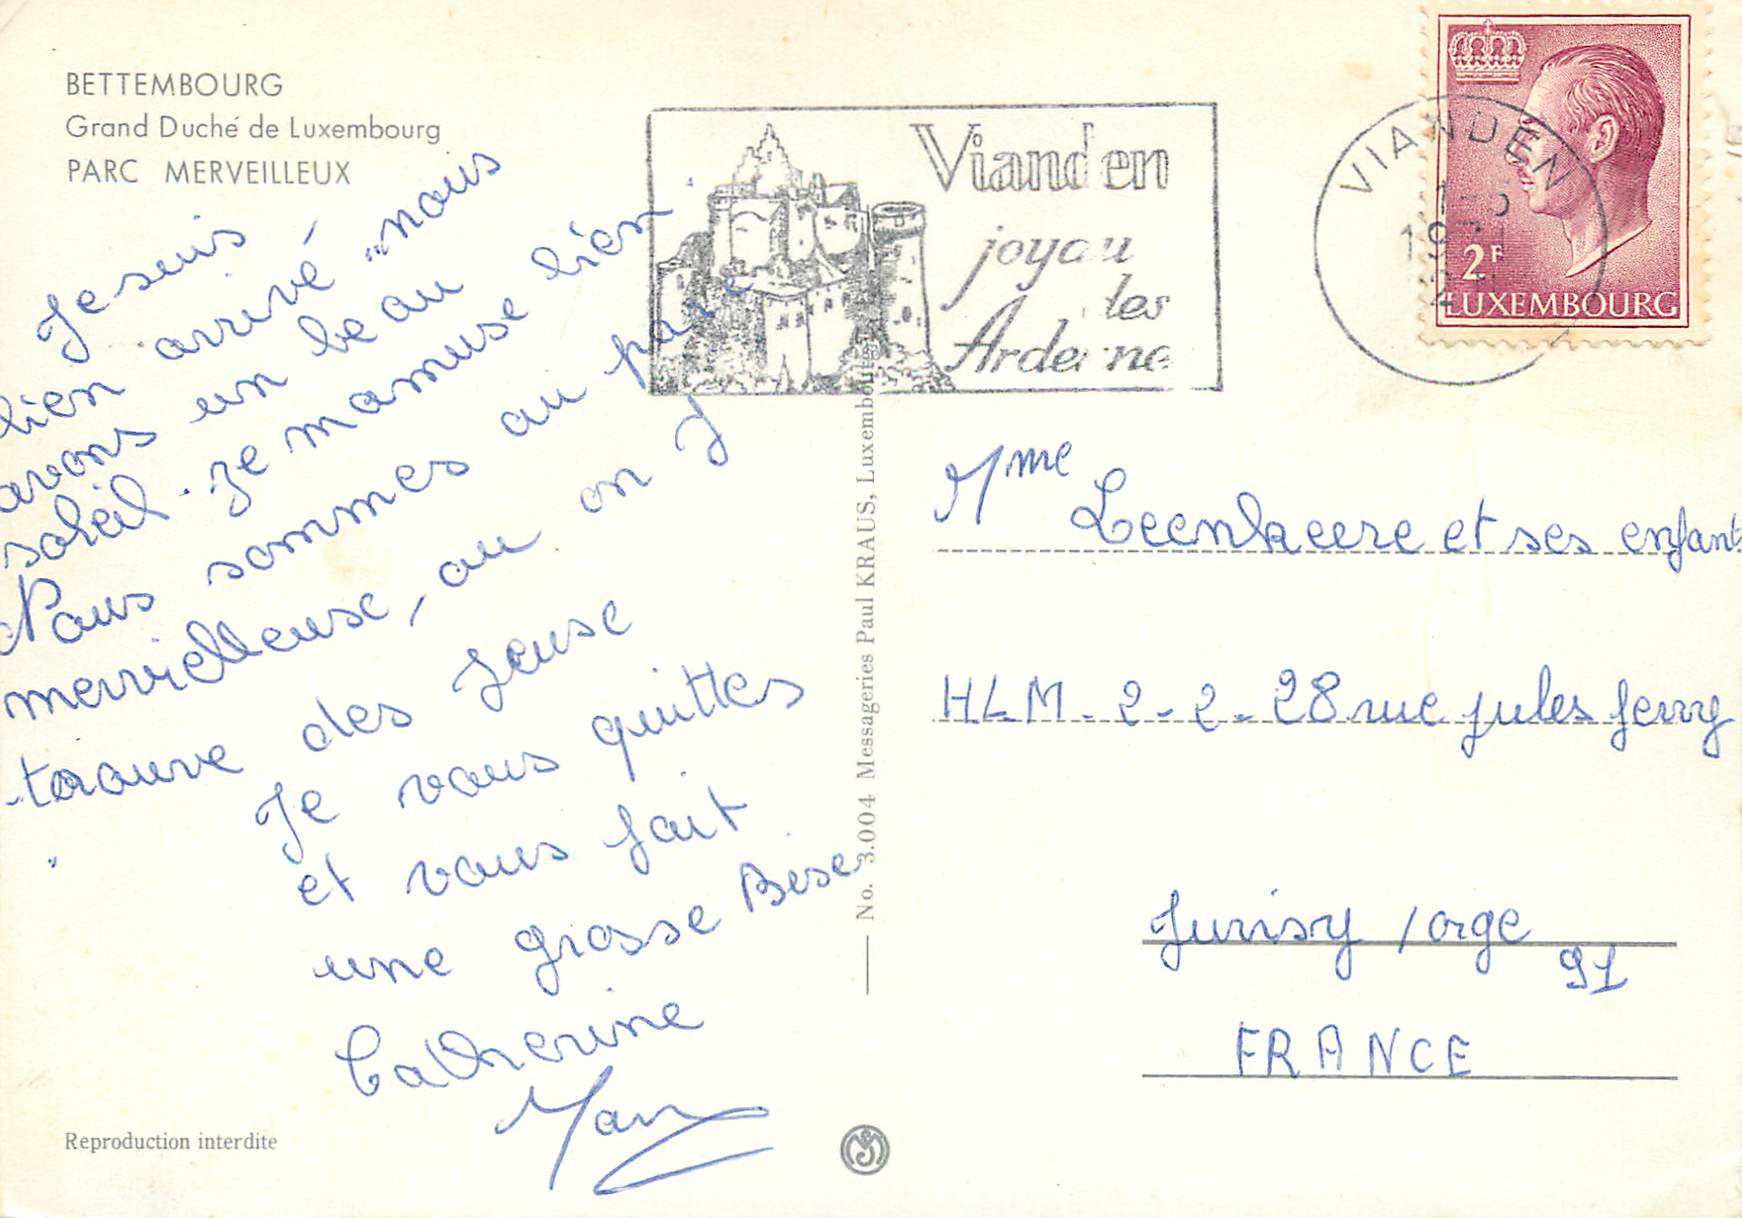 BETTEMBOURG
Grand Duché de Luxembourg
PARC MERVEILLEUX
Je suis
bien arrivé nous
avons un beau
soleil. je mamuse bien
Nous sommes au parc
merveilleuse, ou on y
trouve des jeuse
Je vous quittes
et vous fait
une grosse Bise
Catherine
Reproduction interdite
No. 3.004 Messageries Paul KRAUS, Luxembourg
Vianden
joyau
des
Ardenne
VIANDEN
2F
LUXEMBOURG
Mme Leenkeere et ses enfants
HLM - 2 - 2 - 28 rue jules ferry
Juvisy / orge
91
FRANCE